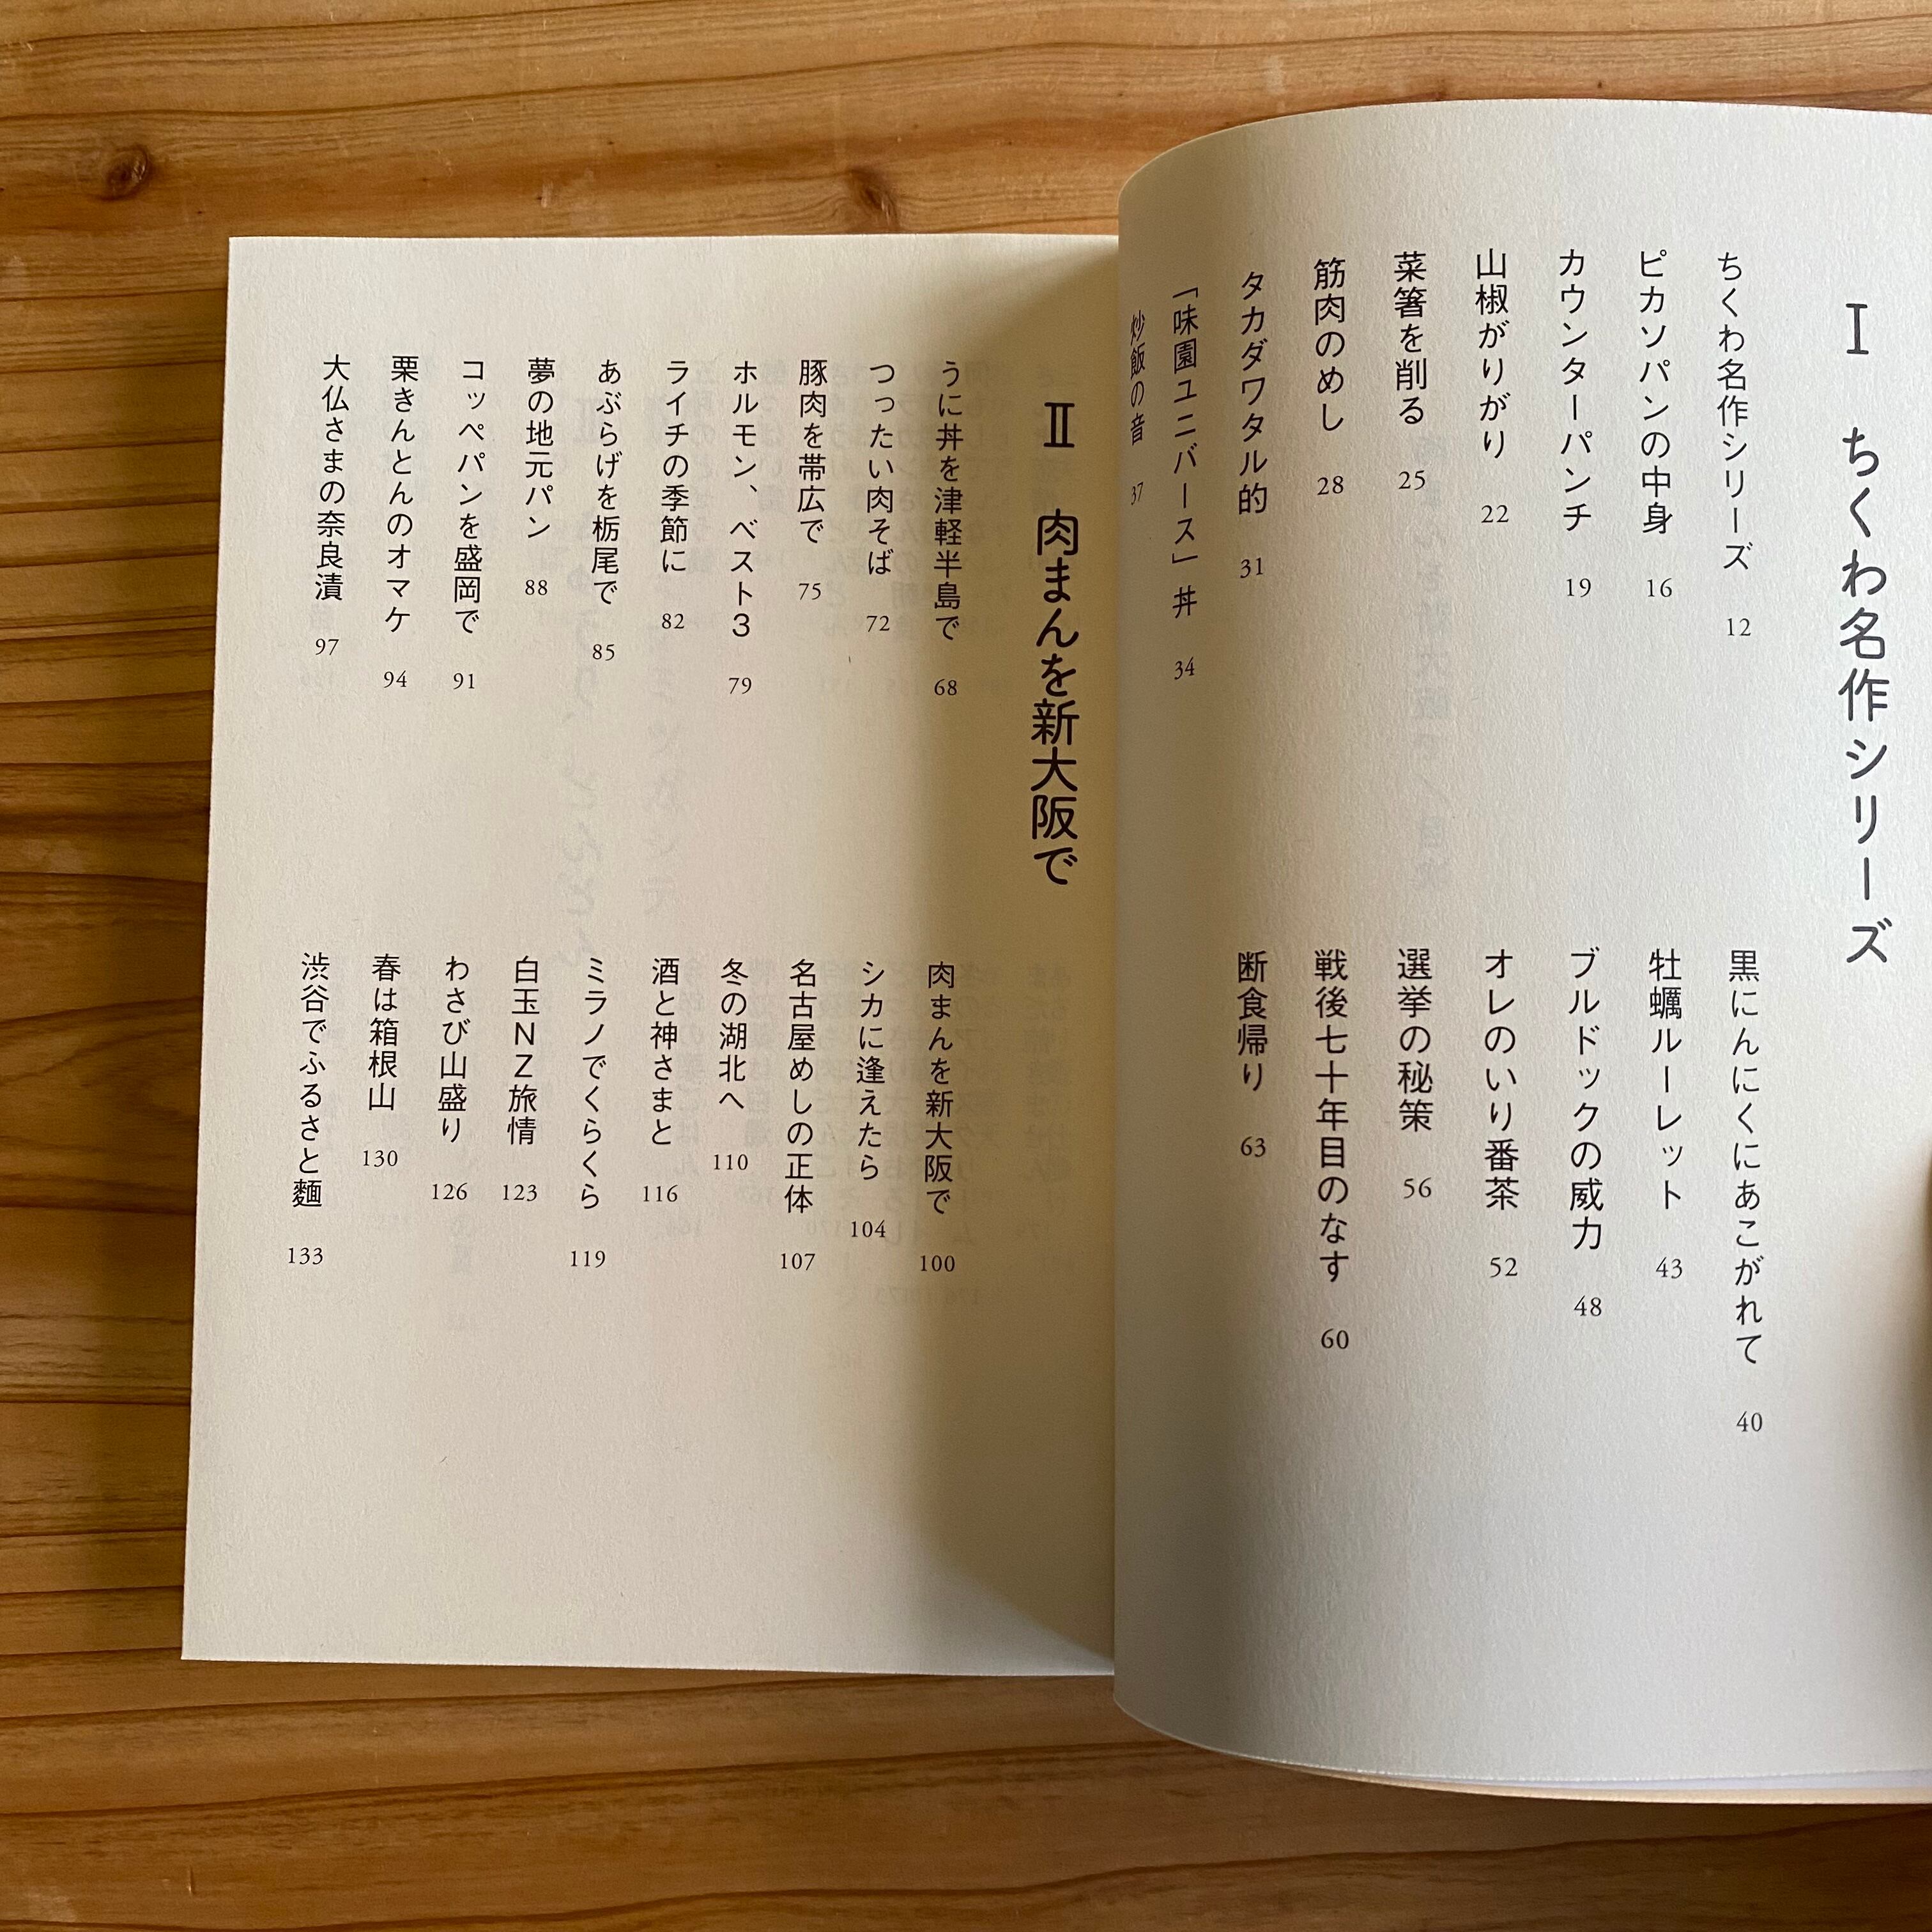 Ⅰ ちくわ名作シリーズ
ちくわ名作シリーズ 12
ピカソパンの中身 16
カウンターパンチ 19
山椒がりがり 22
菜箸を削る 25
筋肉のめし 28
タカダワタル的 31
「味園ユニバース」丼 34
炒飯の音 37
黒にんにくにあこがれて 40
牡蠣ルーレット 43
ブルドックの威力 48
オレのいり番茶 52
選挙の秘策 56
戦後七十年目のなす 60
断食帰り 63
Ⅱ 肉まんを新大阪で
うに丼を津軽半島で 68
つったい肉そば 72
豚肉を帯広で 75
ホルモン、ベスト3 79
ライチの季節に 82
あぶらげを栃尾で 85
夢の地元パン 88
コッペパンを盛岡で 91
栗きんとんのオマケ 94
大仏さまの奈良漬 97
肉まんを新大阪で 100
シカに逢えたら 104
名古屋めしの正体 107
冬の湖北へ 110
酒と神さまと 116
ミラノでくらくら 119
白玉NZ旅情 123
わさび山盛り 126
春は箱根山 130
渋谷でふるさと麺 133